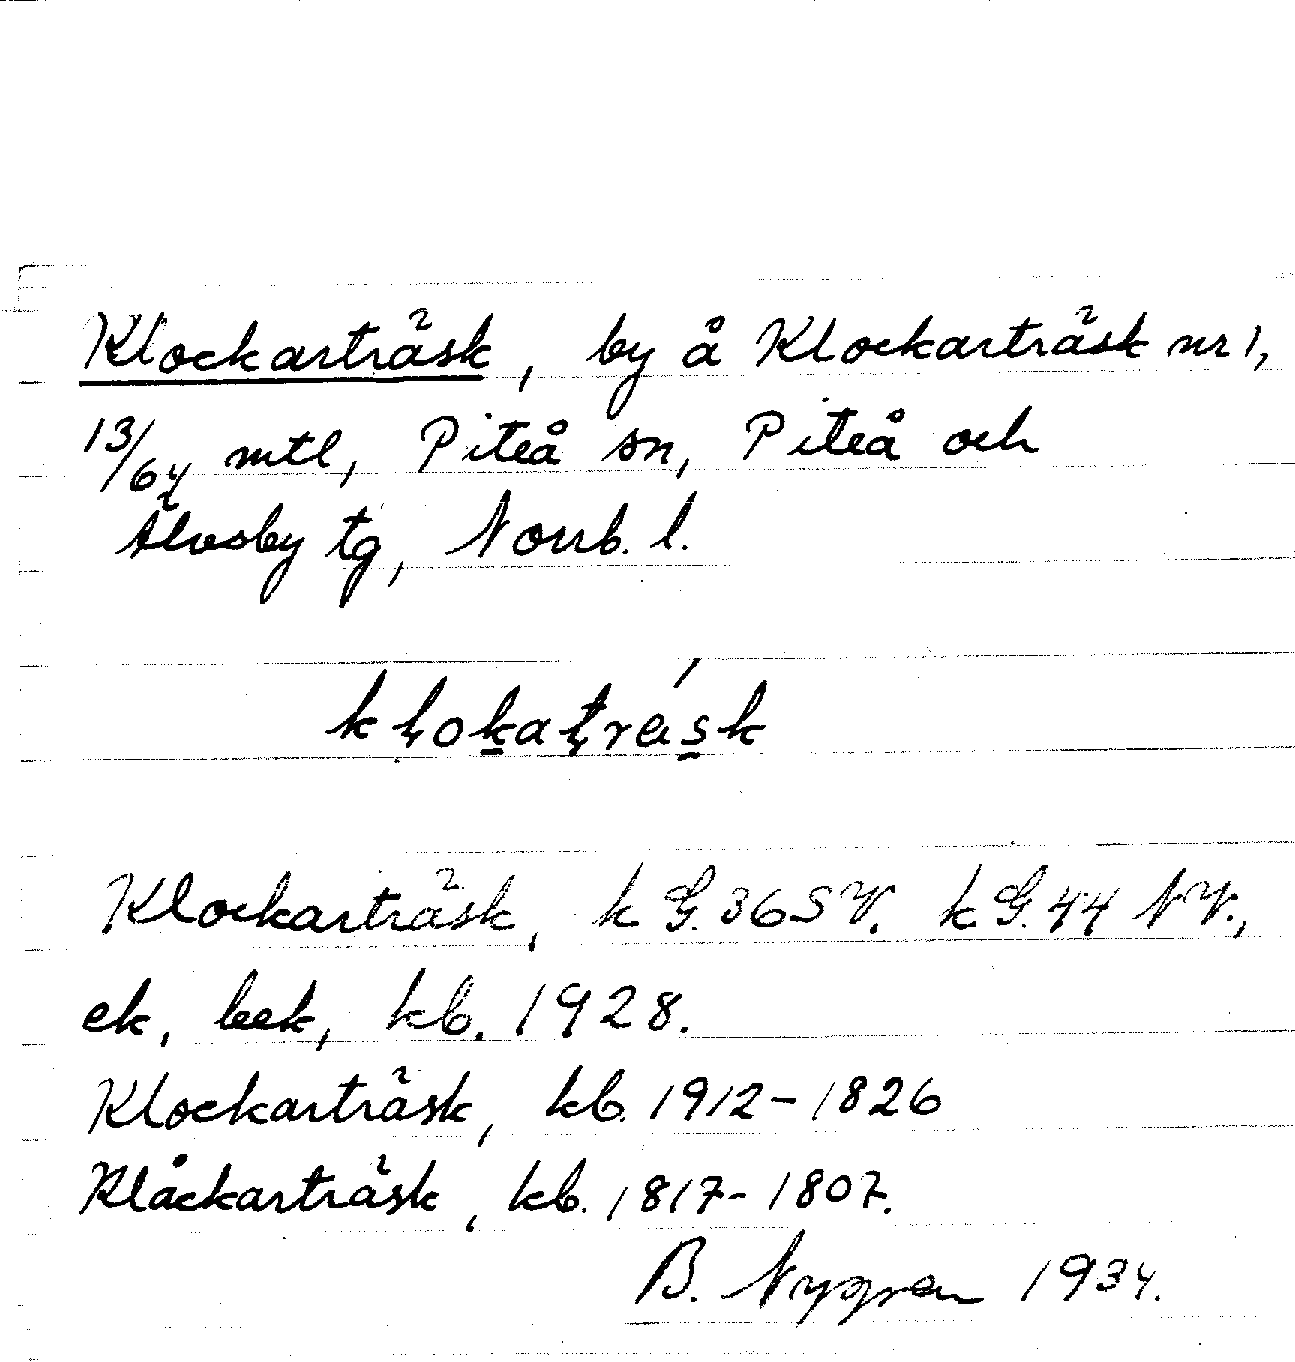 Klockarträsk, by å Klockarträsk nr 1,
13/64 mtl, Piteå sn, Piteå och
Älvsby tg, Norrb. l.
Klockarträsk, k G. 36 SV. k G. 44 NV.,
ek, bek, kb. 1928.
Klockarträsk, kb. 1912-1826
Klåckarträsk, kb. 1817-1807.
B. Nygren 1934.